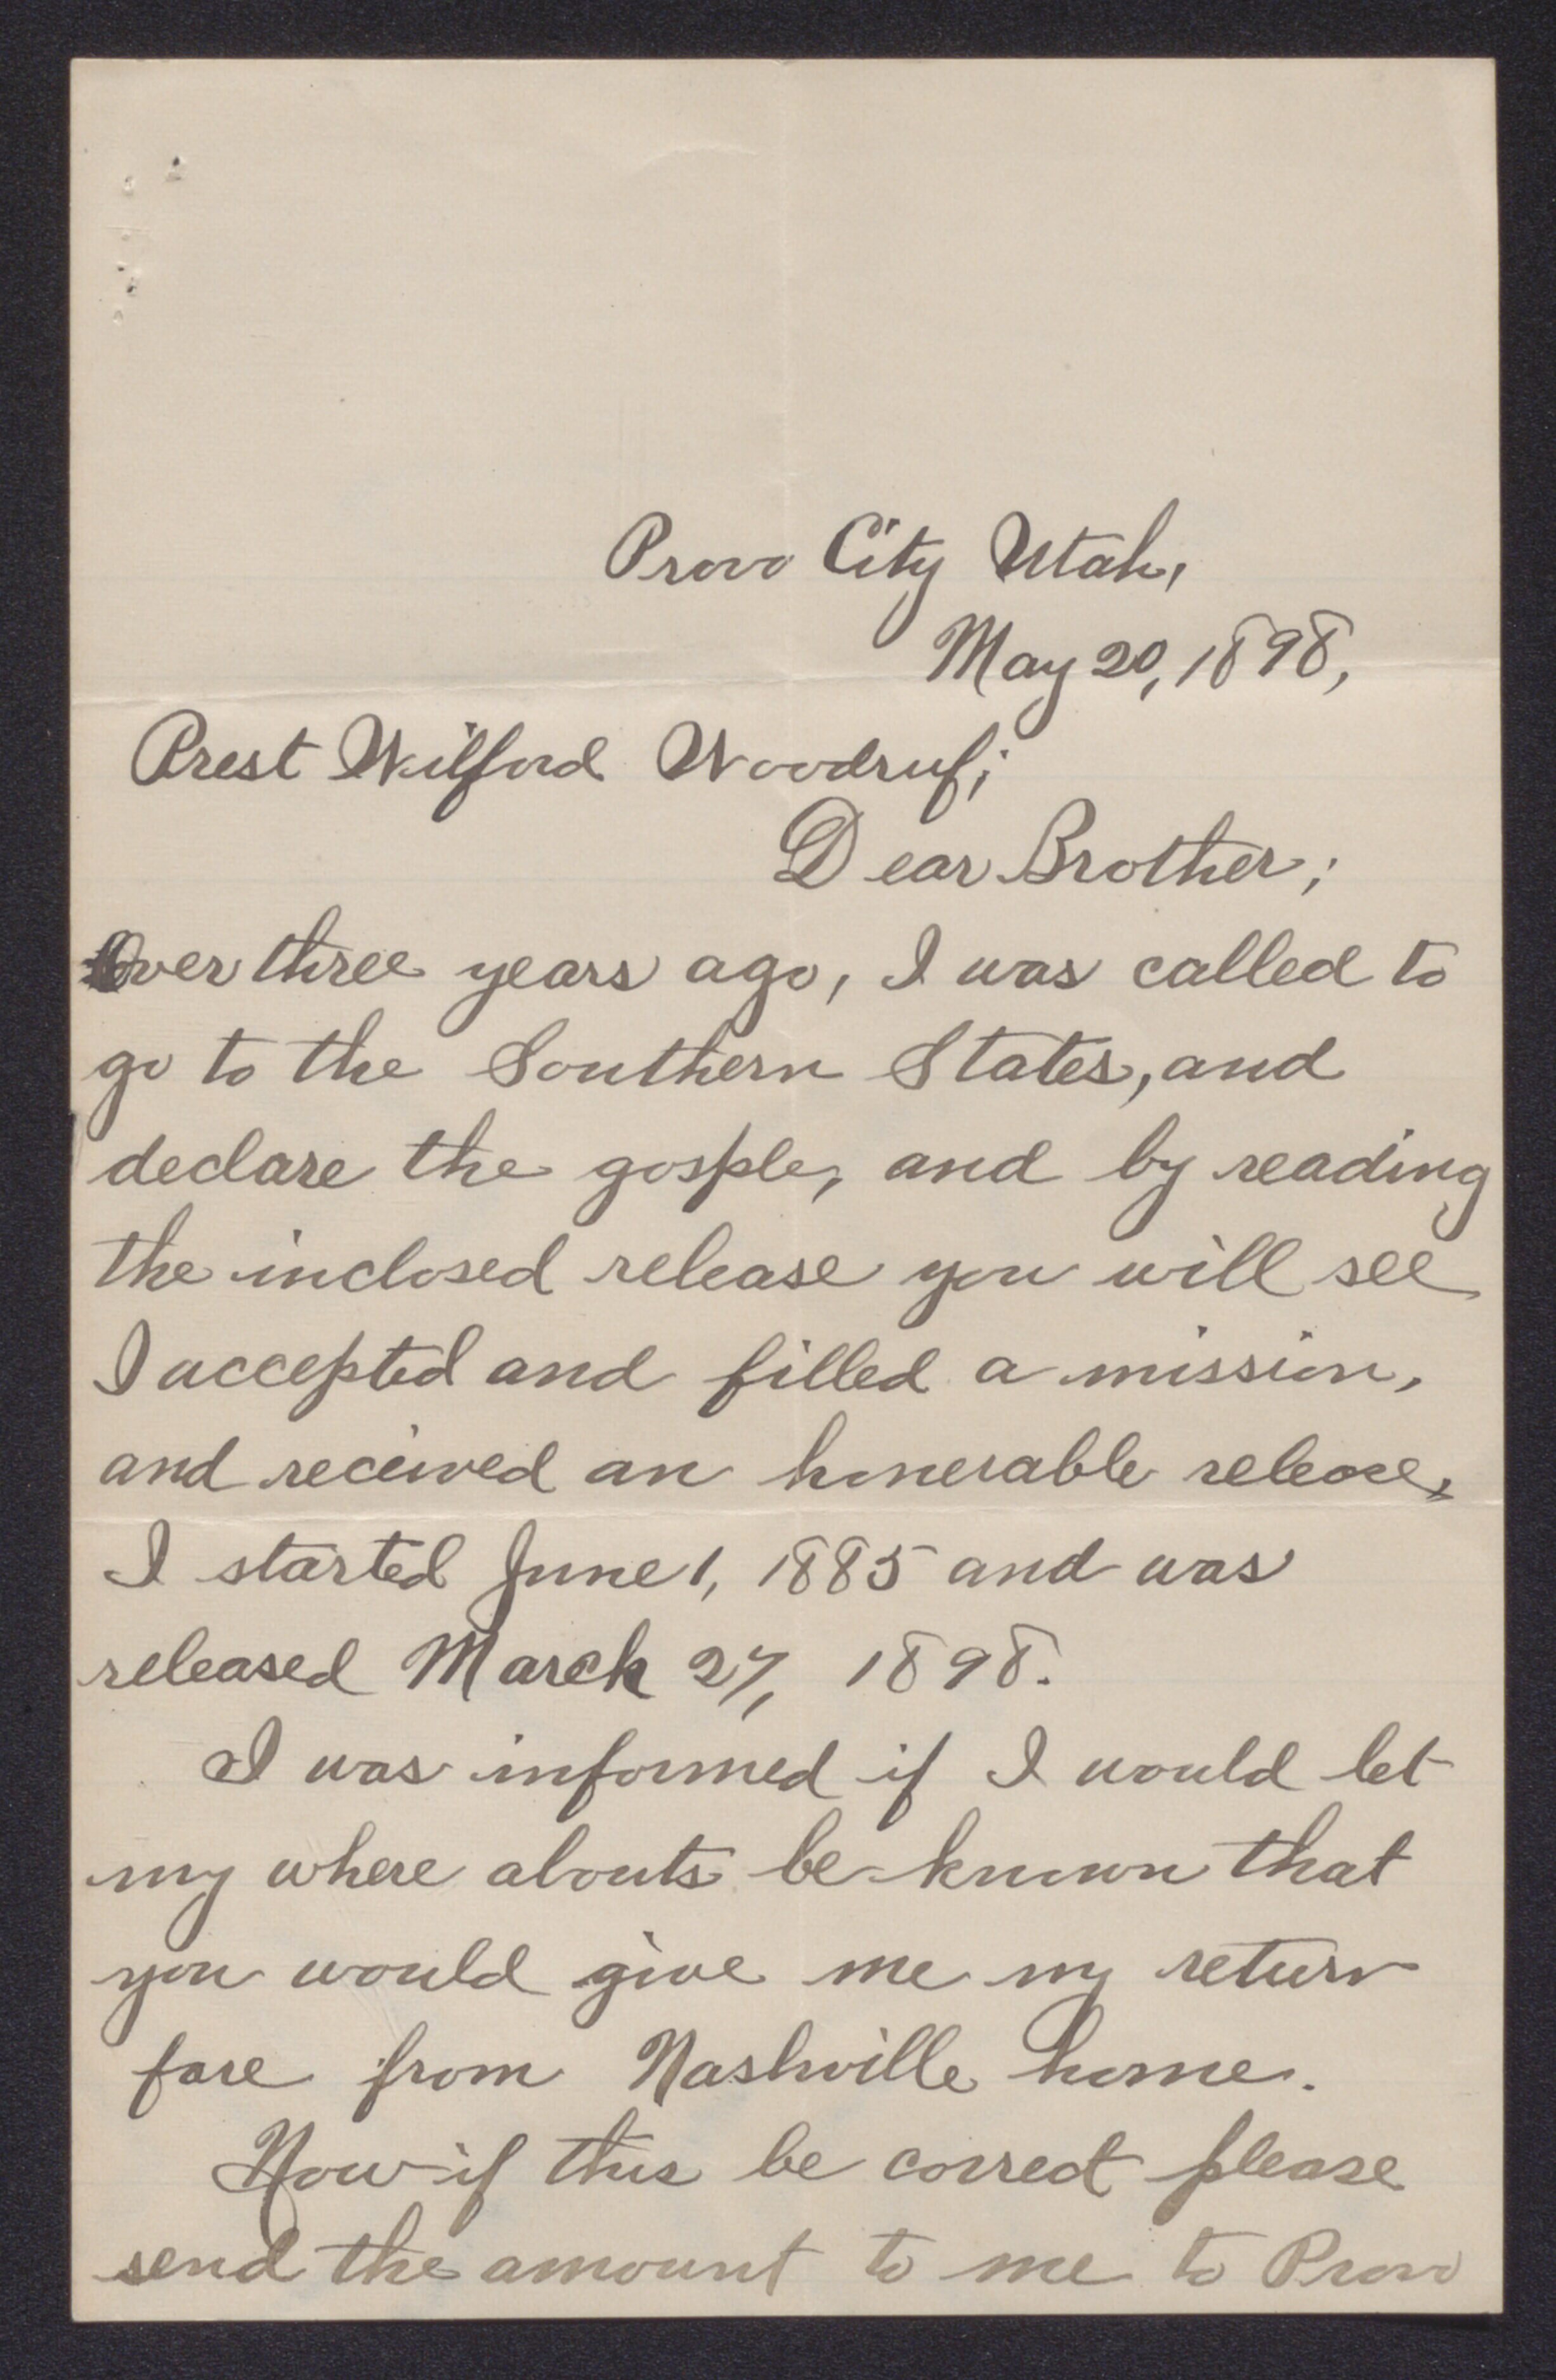 Provo City Utah,
May 20, 1898,
Prest Wilford Woodruf;
Dear Brother;
Over three years ago, I was called to
go to the Southern States, and
declare the gosple, and by reading
the inclosed release you will see
I accepted and filled a mission,
and received an honerable release,
I started June 1, 1885 and was
released March 27, 1898.
I was informed if I would let
my where abouts be known that
you would give me my return
fare from Nashville home.
Now if this be correct please
send the amount to me to Provo